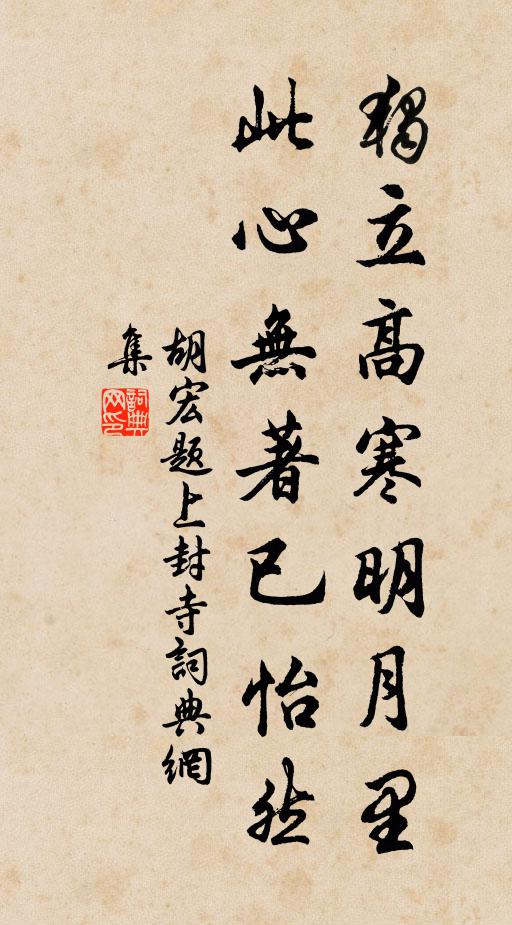 獨立高寒明月里
此心無著已怡然
胡宏题上封寺詞典網
集
詞典
网印